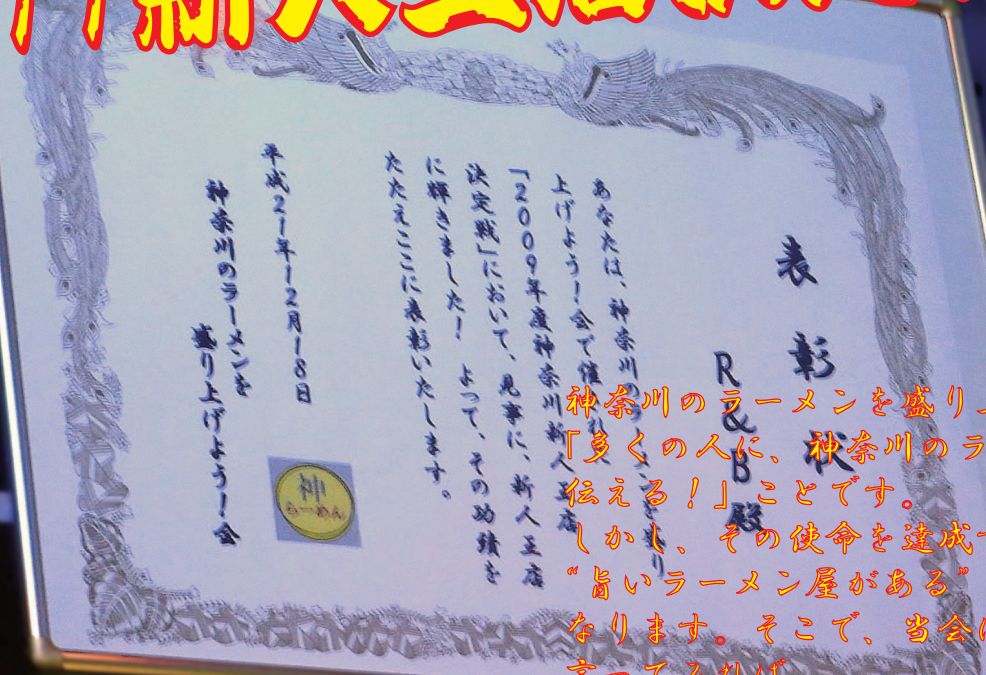 新人王店
表彰状
R&B殿
あなたは、神奈川のラーメンを盛り
上げよう！会で催された
「2009年度神奈川新人王店
決定戦」において、見事に、新人王店
に輝きました！ よって、その功績を
たたえここに表彰いたします。
平成21年12月18日
神奈川のラーメンを
盛り上げよう！会
神
らーめん
神奈川のラーメンを盛り
「多くの人に、神奈川のラ
伝える！」ことです。
しかし、その使命を達成
“旨いラーメン屋がある”
なります。そこで、当会